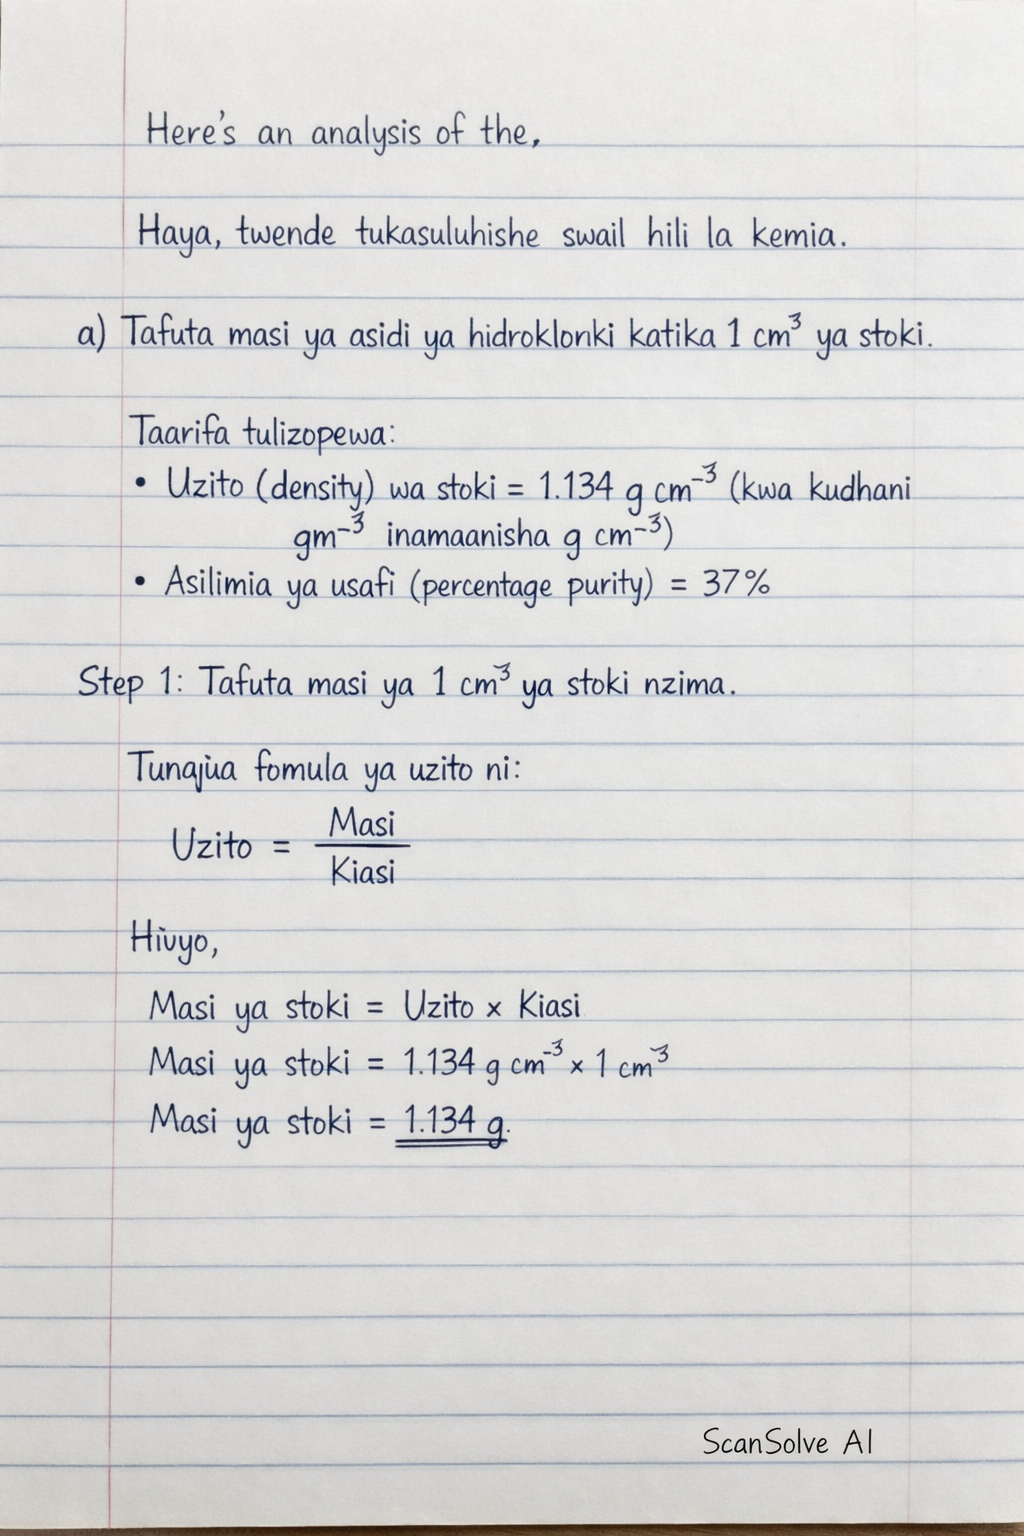 Here's an analysis of the,
Haya, twende tukasuluhishe swail hili la kemia.
a) Tafuta masi ya asidi ya hidroklonki katika 1 cm³ ya stoki.
Taarifa tulizopewa:
• Uzito (density) wa stoki = 1.134 g cm⁻³ (kwa kudhani
gm⁻³ inamaanisha g cm⁻³)
• Asilimia ya usafi (percentage purity) = 37%
Step 1: Tafuta masi ya 1 cm³ ya stoki nzima.
Tunajua fomula ya uzito ni:
Uzito = Masi / Kiasi
Hivyo,
Masi ya stoki = Uzito × Kiasi
Masi ya stoki = 1.134 g cm⁻³ × 1 cm³
Masi ya stoki = 1.134 g.
ScanSolve AI